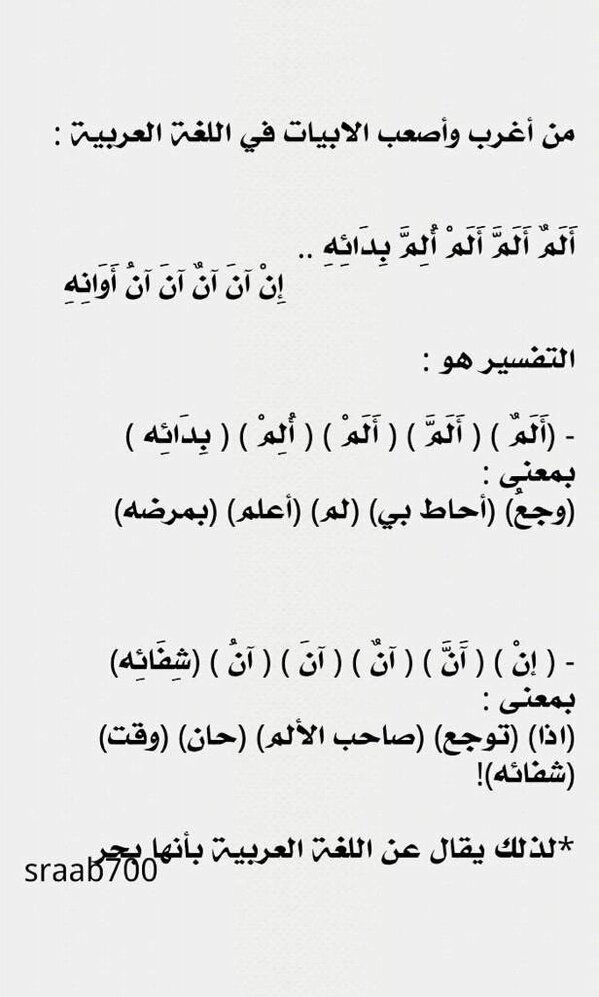 من أغرب وأصعب الابيات في اللغة العربية :
أَلَمٌ أَلَمَّ أَلَمْ أُلِمَّ بِدَائِهِ ..
إِنْ آنَ آنٌ آنَ آنُ أَوَانِهِ
التفسير هو :
- (أَلَمٌ ) ( أَلَمَّ ) ( أَلَمْ ) ( أُلِمْ ) ( بِدَائِه )
بمعنى :
(وجعُ) (أحاط بي) (لم) (أعلم) (بمرضه)
- ( إنْ ) ( أَنَّ ) ( آنٌ ) ( آنَ ) ( آنُ ) (شِفَائِه)
بمعنى :
(اذا) (توجع) (صاحب الألم) (حان) (وقت)
(شفائه)!
*لذلك يقال عن اللغة العربية بأنها بحر
sraab700